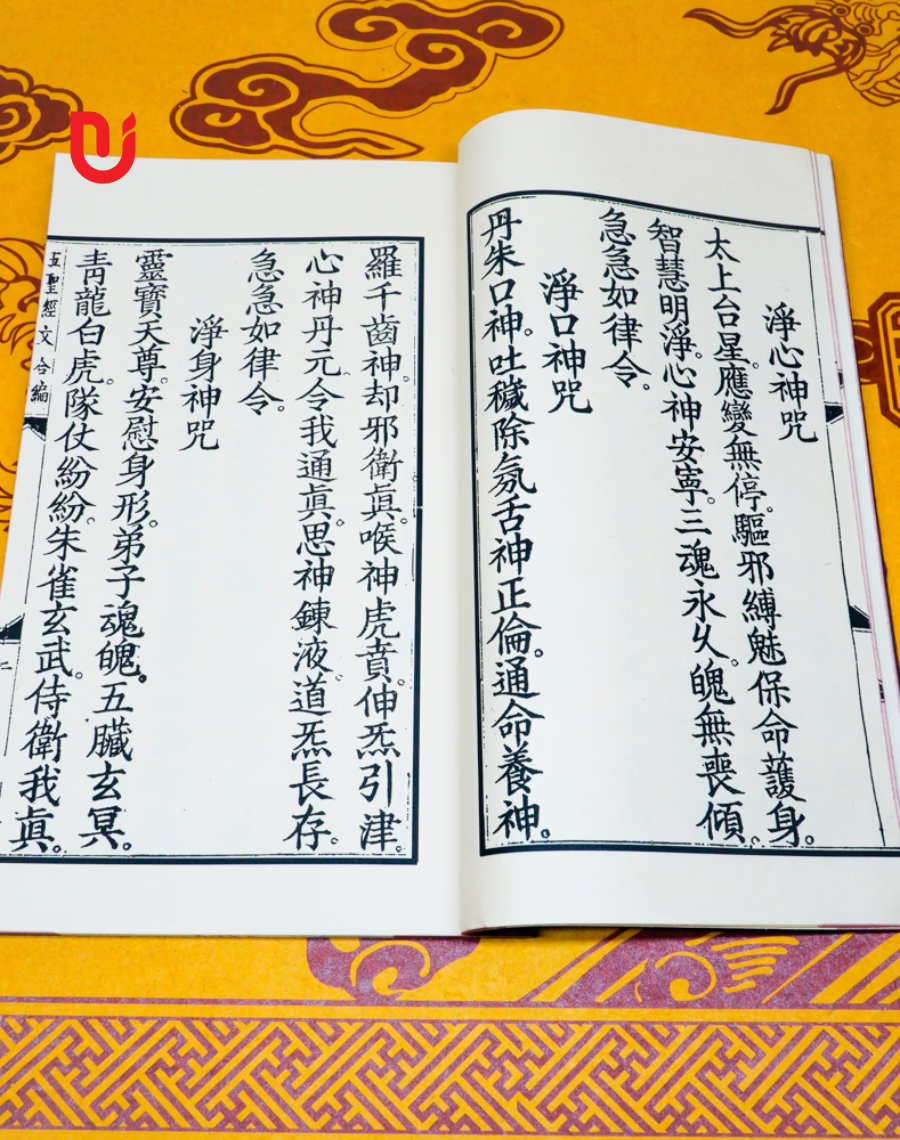 淨心神咒
太上台星。應變無停。驅邪縛魅。保命護身。
智慧明淨。心神安寧。三魂永久。魄無喪傾。
急急如律令。
淨口神咒
丹朱口神。吐穢除氛。舌神正倫。通命養神。
羅千齒神。却邪衛眞。喉神虎賁。伸炁引津。
心神丹元。令我通眞。思神鍊液。道炁長存。
急急如律令。
淨身神咒
靈寶天尊。安慰身形。弟子魂魄。五臟玄冥。
青龍白虎。隊仗紛紛。朱雀玄武。侍衛我眞。
五聖經文合編
二